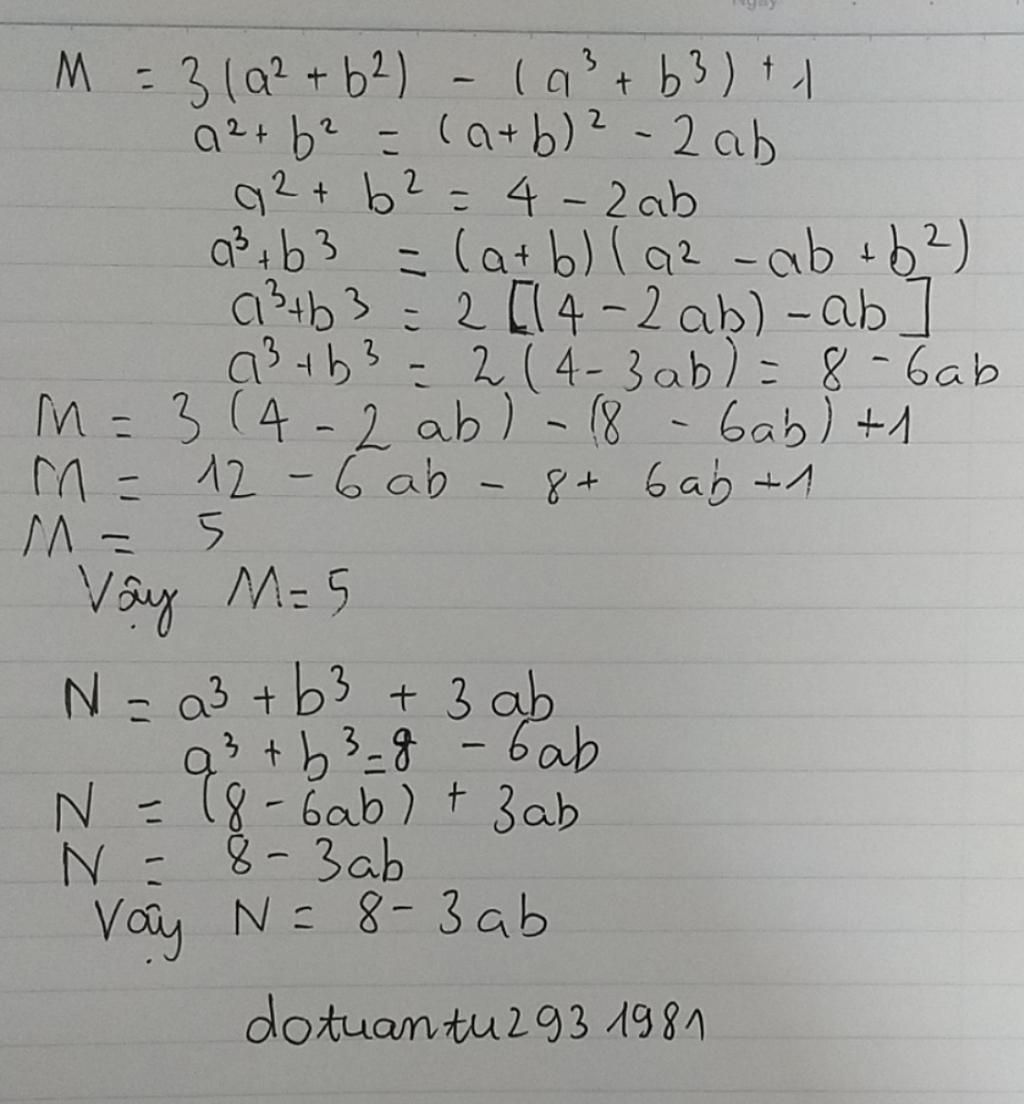 M = 3(a² + b²) - (a³ + b³) + 1
a² + b² = (a+b)² - 2ab
a² + b² = 4 - 2ab
a³ + b³ = (a+b)(a² - ab + b²)
a³ + b³ = 2[(4 - 2ab) - ab]
a³ + b³ = 2(4 - 3ab) = 8 - 6ab
M = 3(4 - 2ab) - (8 - 6ab) + 1
M = 12 - 6ab - 8 + 6ab + 1
M = 5
Vậy M = 5
N = a³ + b³ + 3ab
a³ + b³ = 8 - 6ab
N = (8 - 6ab) + 3ab
N = 8 - 3ab
Vậy N = 8 - 3ab
dotuantu2931981